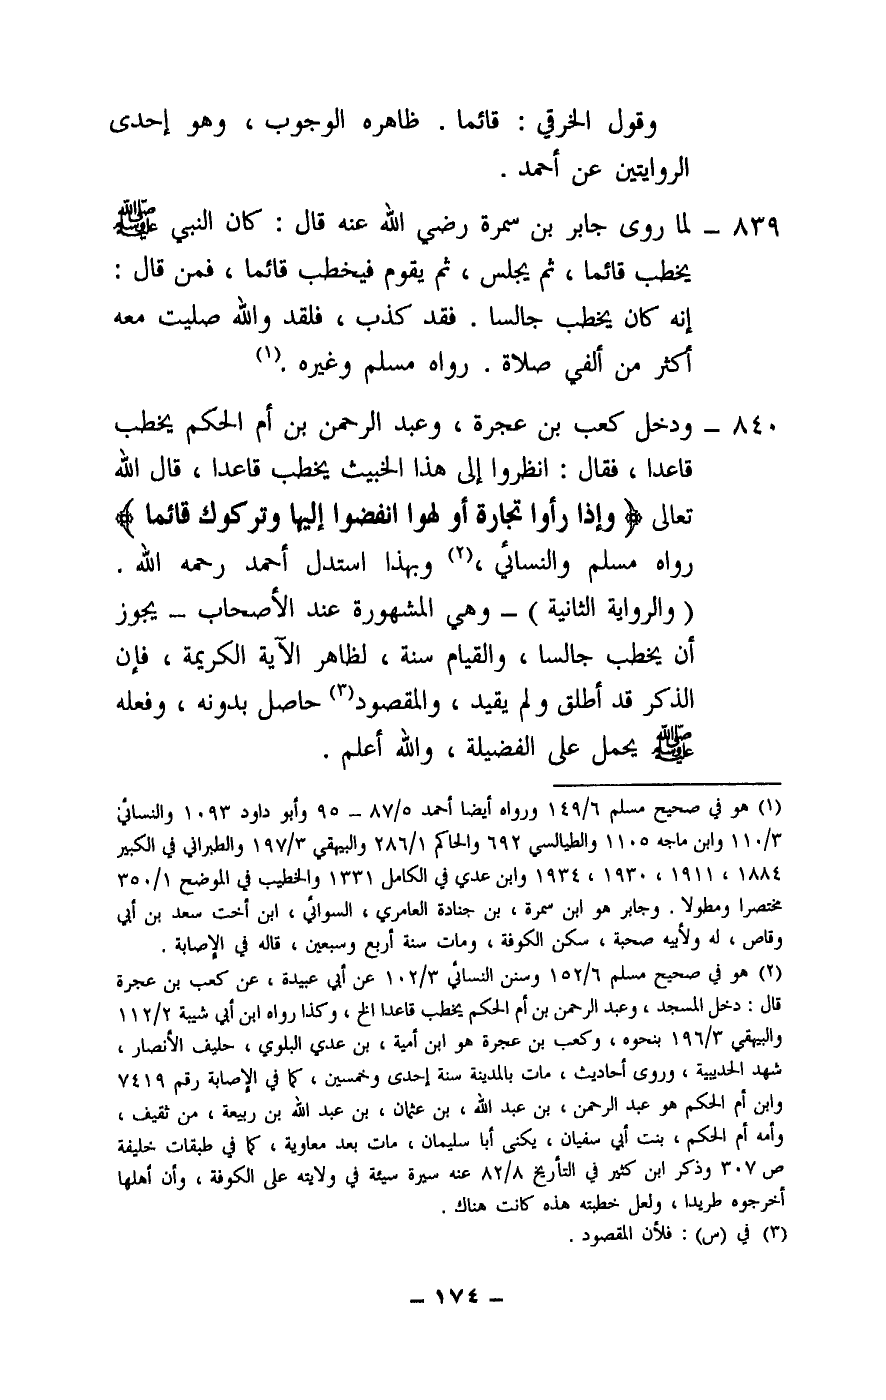 وقول الخرقي : قائما . ظاهره الوجوب ، وهو إحدى
الروايتين عن أحمد .
٨٣٩ – لما روى جابر بن سمرة رضي الله عنه قال : كان النبي ﷺ
يخطب قائما ، ثم يجلس ، ثم يقوم فيخطب قائما ، فمن قال :
إنه كان يخطب جالسا . فقد كذب ، فلقد والله صليت معه
أكثر من ألفي صلاة . رواه مسلم وغيره .(١)
٨٤٠ – ودخل كعب بن عجرة ، وعبد الرحمن بن أم الحكم يخطب
قاعدا ، فقال : انظروا إلى هذا الخبيث يخطب قاعدا ، قال الله
تعالى ﴿ وإذا رأوا تجارة أو لهوا انفضوا إليها وتركوك قائما ﴾
رواه مسلم والنسائي ،(٢) وبهذا استدل أحمد رحمه الله .
( والرواية الثانية ) – وهي المشهورة عند الأصحاب – يجوز
أن يخطب جالسا ، والقيام سنة ، لظاهر الآية الكريمة ، فإن
الذكر قد أطلق ولم يقيد ، والمقصود(٣) حاصل بدونه ، وفعله
ﷺ يحمل على الفضيلة ، والله أعلم .
(١) هو في صحيح مسلم ١٤٩/٦ ورواه أيضا أحمد ٨٧/٥ – ٩٥ وأبو داود ١٠٩٣ والنسائي
١١٠/٣ وابن ماجه ١١٠٥ والطيالسي ٦٩٢ والحاكم ٢٨٦/١ والبيهقي ١٩٧/٣ والطبراني في الكبير
١٨٨٤ ، ١٩١١ ، ١٩٣٠ ، ١٩٣٤ وابن عدي في الكامل ١٣٣١ والخطيب في الموضح ٣٥٠/١
مختصرا ومطولا . وجابر هو ابن سمرة ، بن جنادة العامري ، السوائي ، ابن أخت سعد بن أبي
وقاص ، له ولأبيه صحبة ، سكن الكوفة ، ومات سنة أربع وسبعين ، قاله في الإصابة .
(٢) هو في صحيح مسلم ١٥٢/٦ وسنن النسائي ١٠٢/٣ عن أبي عبيدة ، عن كعب بن عجرة
قال : دخل المسجد ، وعبد الرحمن بن أم الحكم يخطب قاعدا الخ ، وكذا رواه ابن أبي شيبة ١١٢/٢
والبيهقي ١٩٦/٣ بنحوه ، وكعب بن عجرة هو ابن أمية ، بن عدي البلوي ، حليف الأنصار ،
شهد الحديبية ، وروى أحاديث ، مات بالمدينة سنة إحدى وخمسين ، كما في الإصابة رقم ٧٤١٩
وابن أم الحكم هو عبد الرحمن ، بن عبد الله ، بن عثمان ، بن عبد الله بن ربيعة ، من ثقيف ،
وأمه أم الحكم ، بنت أبي سفيان ، يكنى أبا سليمان ، مات بعد معاوية ، كما في طبقات خليفة
ص ٣٠٧ وذكر ابن كثير في التأريخ ٨٢/٨ عنه سيرة سيئة في ولايته على الكوفة ، وأن أهلها
أخرجوه طريدا ، ولعل خطبته هذه كانت هناك .
(٣) في (س) : فلأن المقصود .
– ١٧٤ –